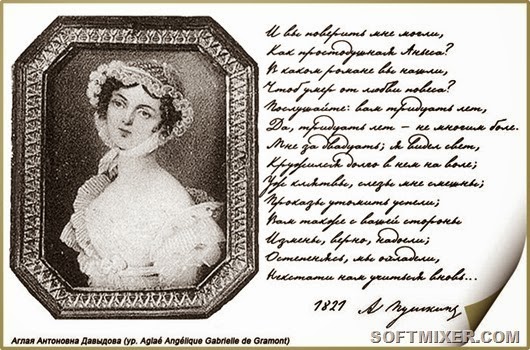 И вы поверить мне могли,
Как простодушная Аньеса?
В каком романе вы нашли,
Чтоб умер от любви повеса?
Послушайте: вам тридцать лет,
Да, тридцать лет – не многим боле.
Мне за двадцать; я видел свет,
Кружился долго в нем на воле;
Уж клятвы, слезы мне смешны;
Проказы утомить успели;
Вам также с вашей стороны
Измены, верно, надоели;
Остепенясь, мы охладели,
Некстати нам учиться вновь...
1821 А Пушкинъ
Аглая Антоновна Давыдова (ур. Aglaé Angélique Gabrielle de Gramont)
SOFTMIXER.COM